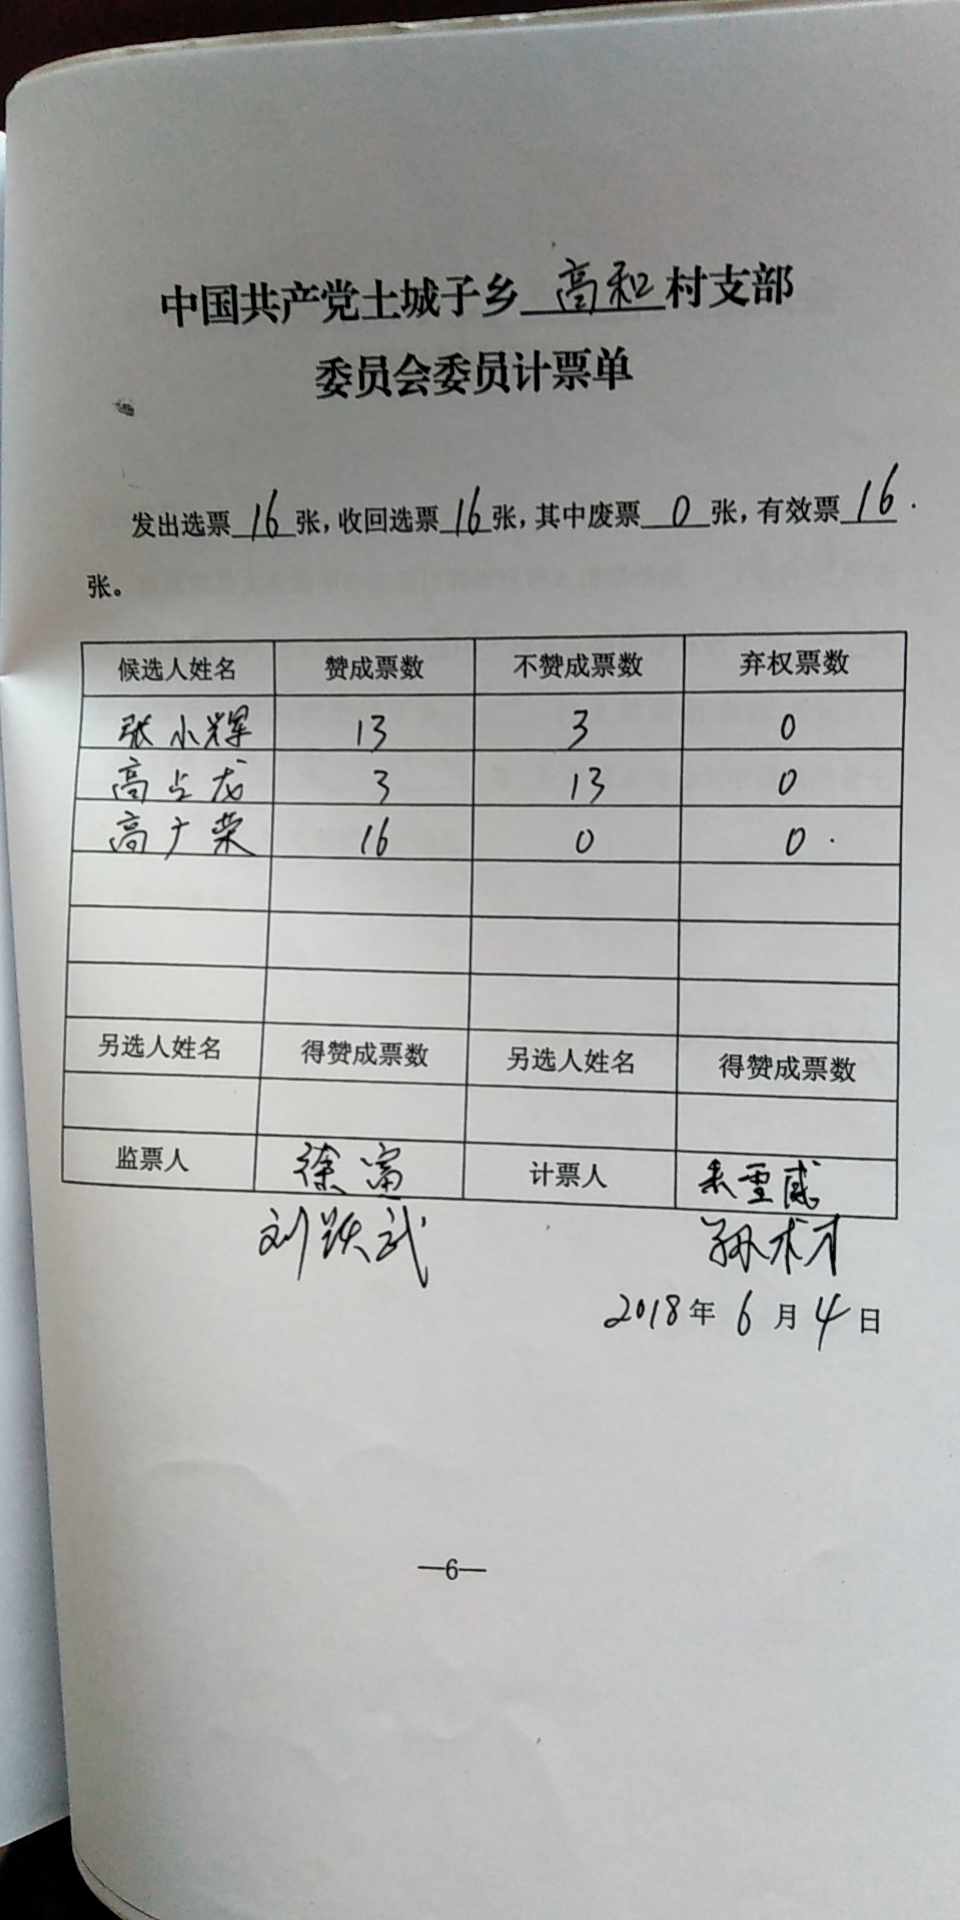 中国共产党土城子乡高和村支部
委员会委员计票单
发出选票16张,收回选票16张,其中废票0张,有效票16
张。
候选人姓名 赞成票数 不赞成票数 弃权票数
张小辉 13 3 0
高占龙 3 13 0
高广荣 16 0 0
另选人姓名 得赞成票数 另选人姓名 得赞成票数
监票人 徐富 计票人
刘跃武 孙术才
2018年6月4日
—6—